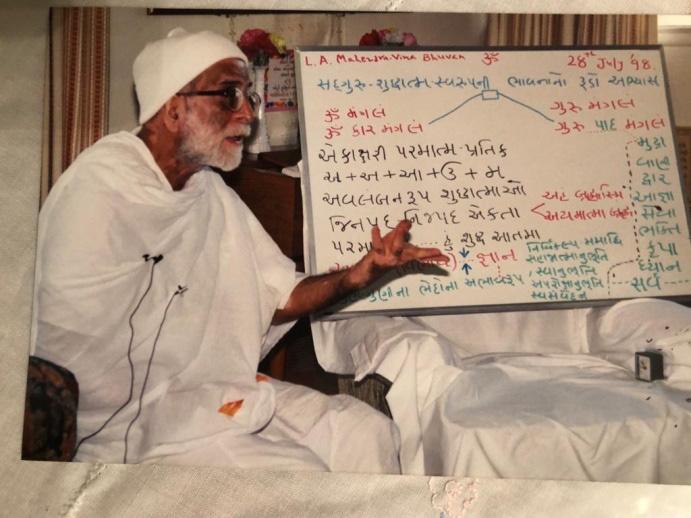 L.A. Mahendra-Vina Bhuvan ૐ 28th July '98.
સદ્ગુરુ-શુદ્ધાત્મ સ્વરૂપની ભાવનાનો રૂડો અભ્યાસ
ૐ મંગલં ગુરુ મંગલં
ૐ કાર મંગલં ગુરુ પાદ મંગલં
એકાક્ષરી પરમાત્મ પ્રતિક
અ + અ + આ + ઉ + મ
અવલંબનરૂપ શુદ્ધાત્માઓ
જિનપદ નિજપદ એકતા
અહં બ્રહ્માસ્મિ
અયમાત્મા બ્રહ્મ
હું શુદ્ધ આતમા
જ્ઞાન
ના ભેદોના અભાવરૂપ
નિર્વિકલ્પ સમાધિ
સહજાત્માનુભૂતિ
સ્વાનુભૂતિ
અપરોક્ષાનુભૂતિ
સ્વસંવેદન
મુદ્રા
વાણી
દ્વાર
આજ્ઞા
સેવા
ભક્તિ
કૃપા
ધ્યાન
સર્વ